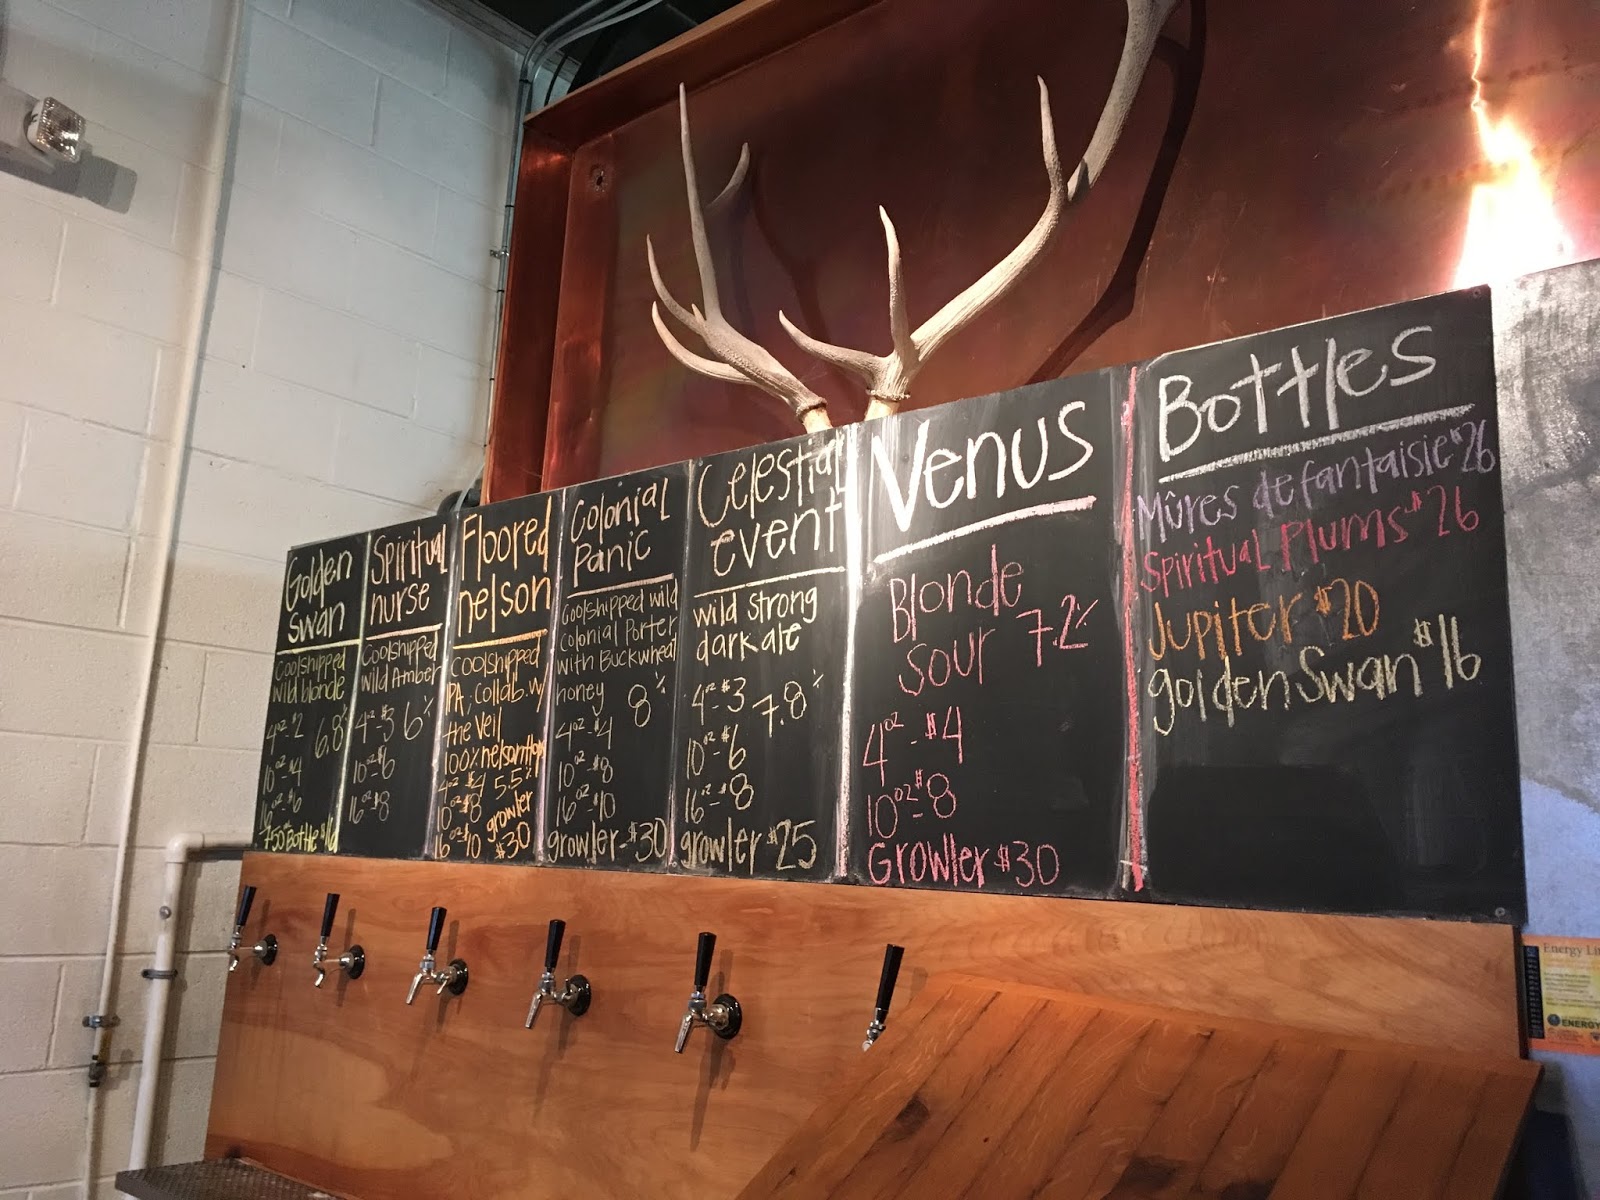 Golden
Swan
Coolshipped
wild blonde
6.8%
4oz-$2
10oz-$4
16oz-$6
750 Bottle $16
Spiritual
nurse
Coolshipped
wild Amber
4oz-$3 6%
10oz-$6
16oz-$8
Floored
nelson
Coolshipped
IPA, collab w/
the Veil
100% nelson Hops
4oz-$4 5.5%
10oz-$8 growler
16oz-$10 $30
Colonial
Panic
Coolshipped wild
colonial Porter
with Buckwheat
honey 8%
4oz-$4
10oz-$8
16oz-$10
growler-$30
Celestial
event
wild strong
dark ale
4oz-$3 7.8%
10oz-$6
16oz-$8
growler $25
Venus
Blonde
Sour 7.2%
4oz-$4
10oz-$8
Growler-$30
Bottles
Mûres de fantaisie $26
Spiritual Plums $26
Jupiter $20
golden Swan $16
Energy
ENERGY